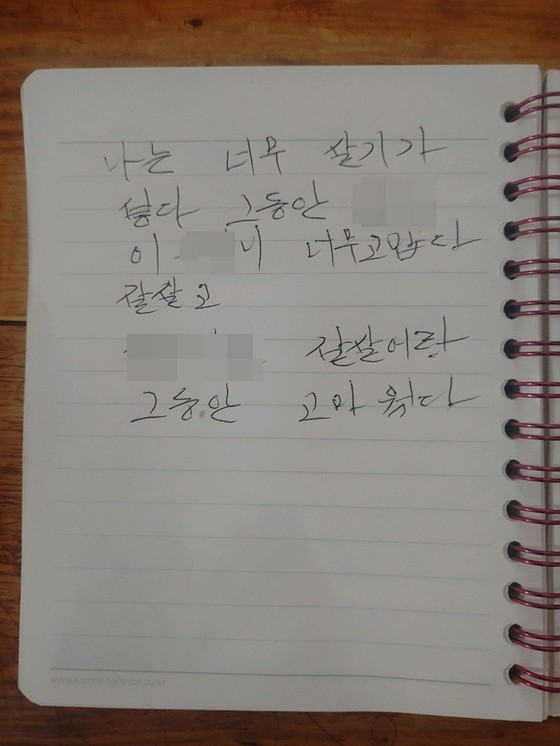 나는 너무 살기가
싷다 그동안
이 니 너무고맙다
잘살고
잘살어라
그동안 고마웠다